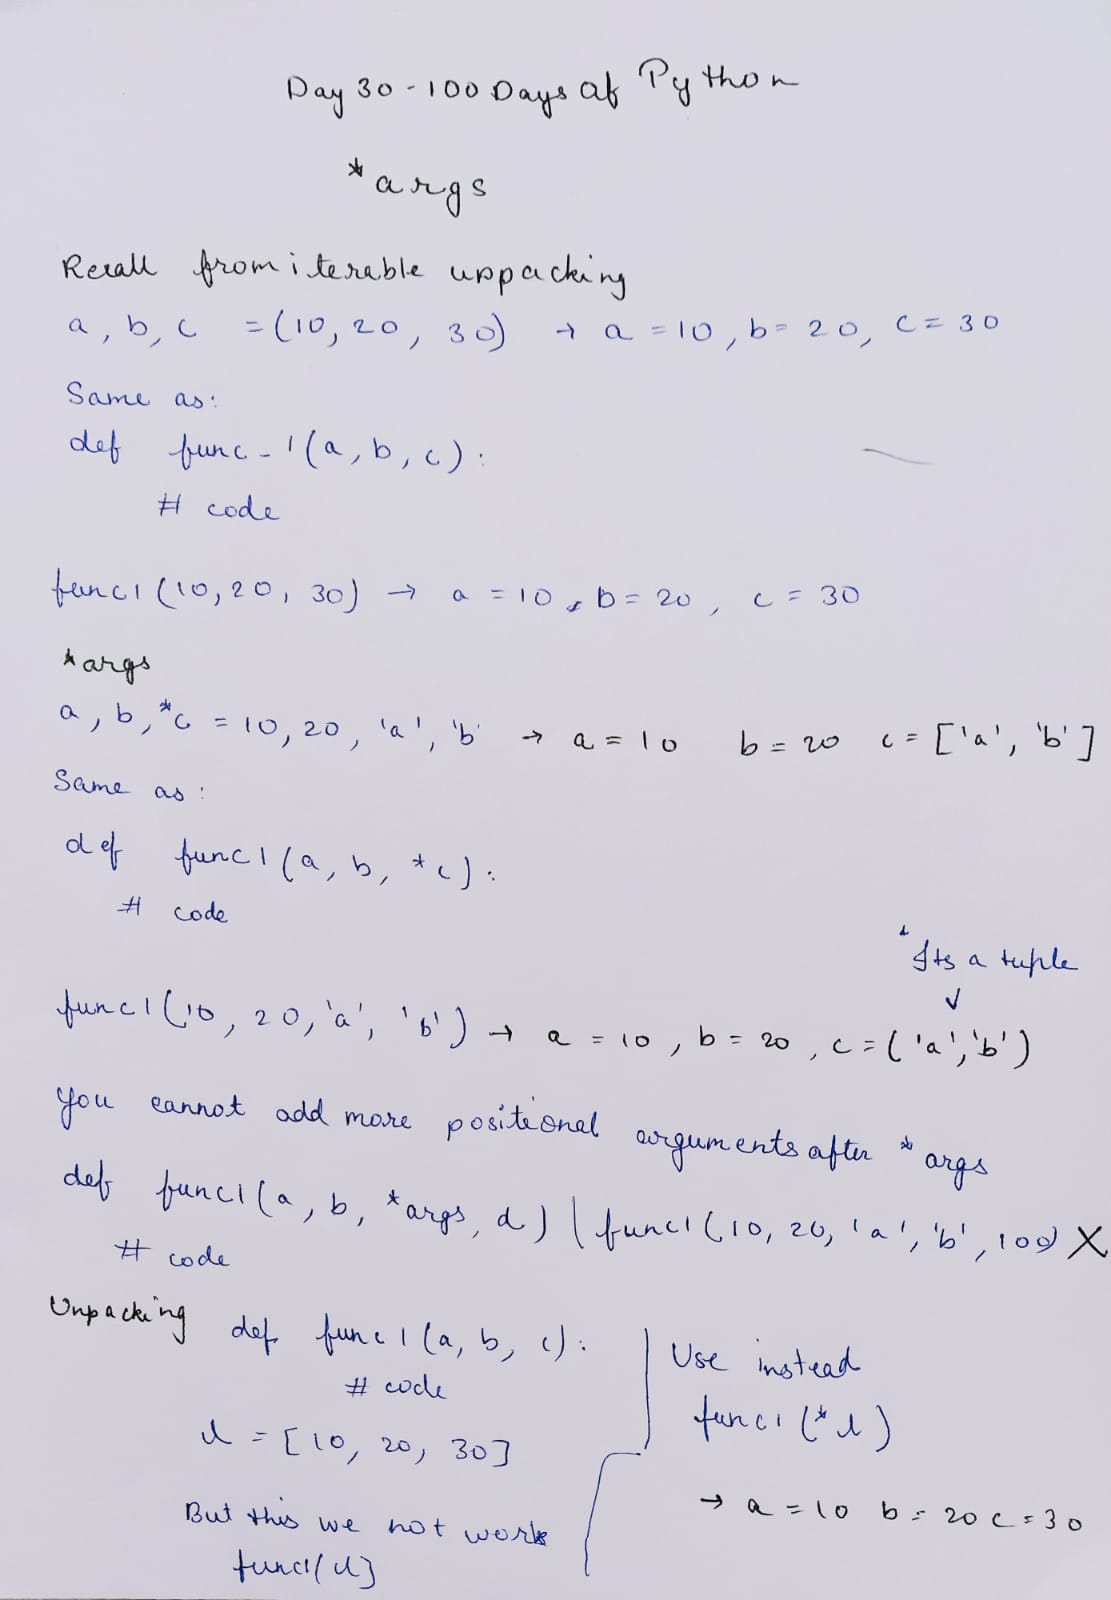 Day 30 - 100 Days of Python
*args
Recall from iterable unpacking
a, b, c = (10, 20, 30) → a = 10, b = 20, c = 30
Same as:
def func_1(a, b, c):
# code
func1(10, 20, 30) → a = 10, b = 20, c = 30
*args
a, b, *c = 10, 20, 'a', 'b' → a = 10 b = 20 c = ['a', 'b']
Same as:
def func1(a, b, *c):
# code
*Its a tuple
func1(10, 20, 'a', 'b') → a = 10, b = 20, c = ('a', 'b')
You cannot add more positional arguments after *args
def func1(a, b, *args, d) | func1(10, 20, 'a', 'b', 100) X
# code
Unpacking def func1(a, b, c):
# code
l = [10, 20, 30]
But this we not work
func1(l)
Use instead
func1(*l)
→ a = 10 b = 20 c = 30